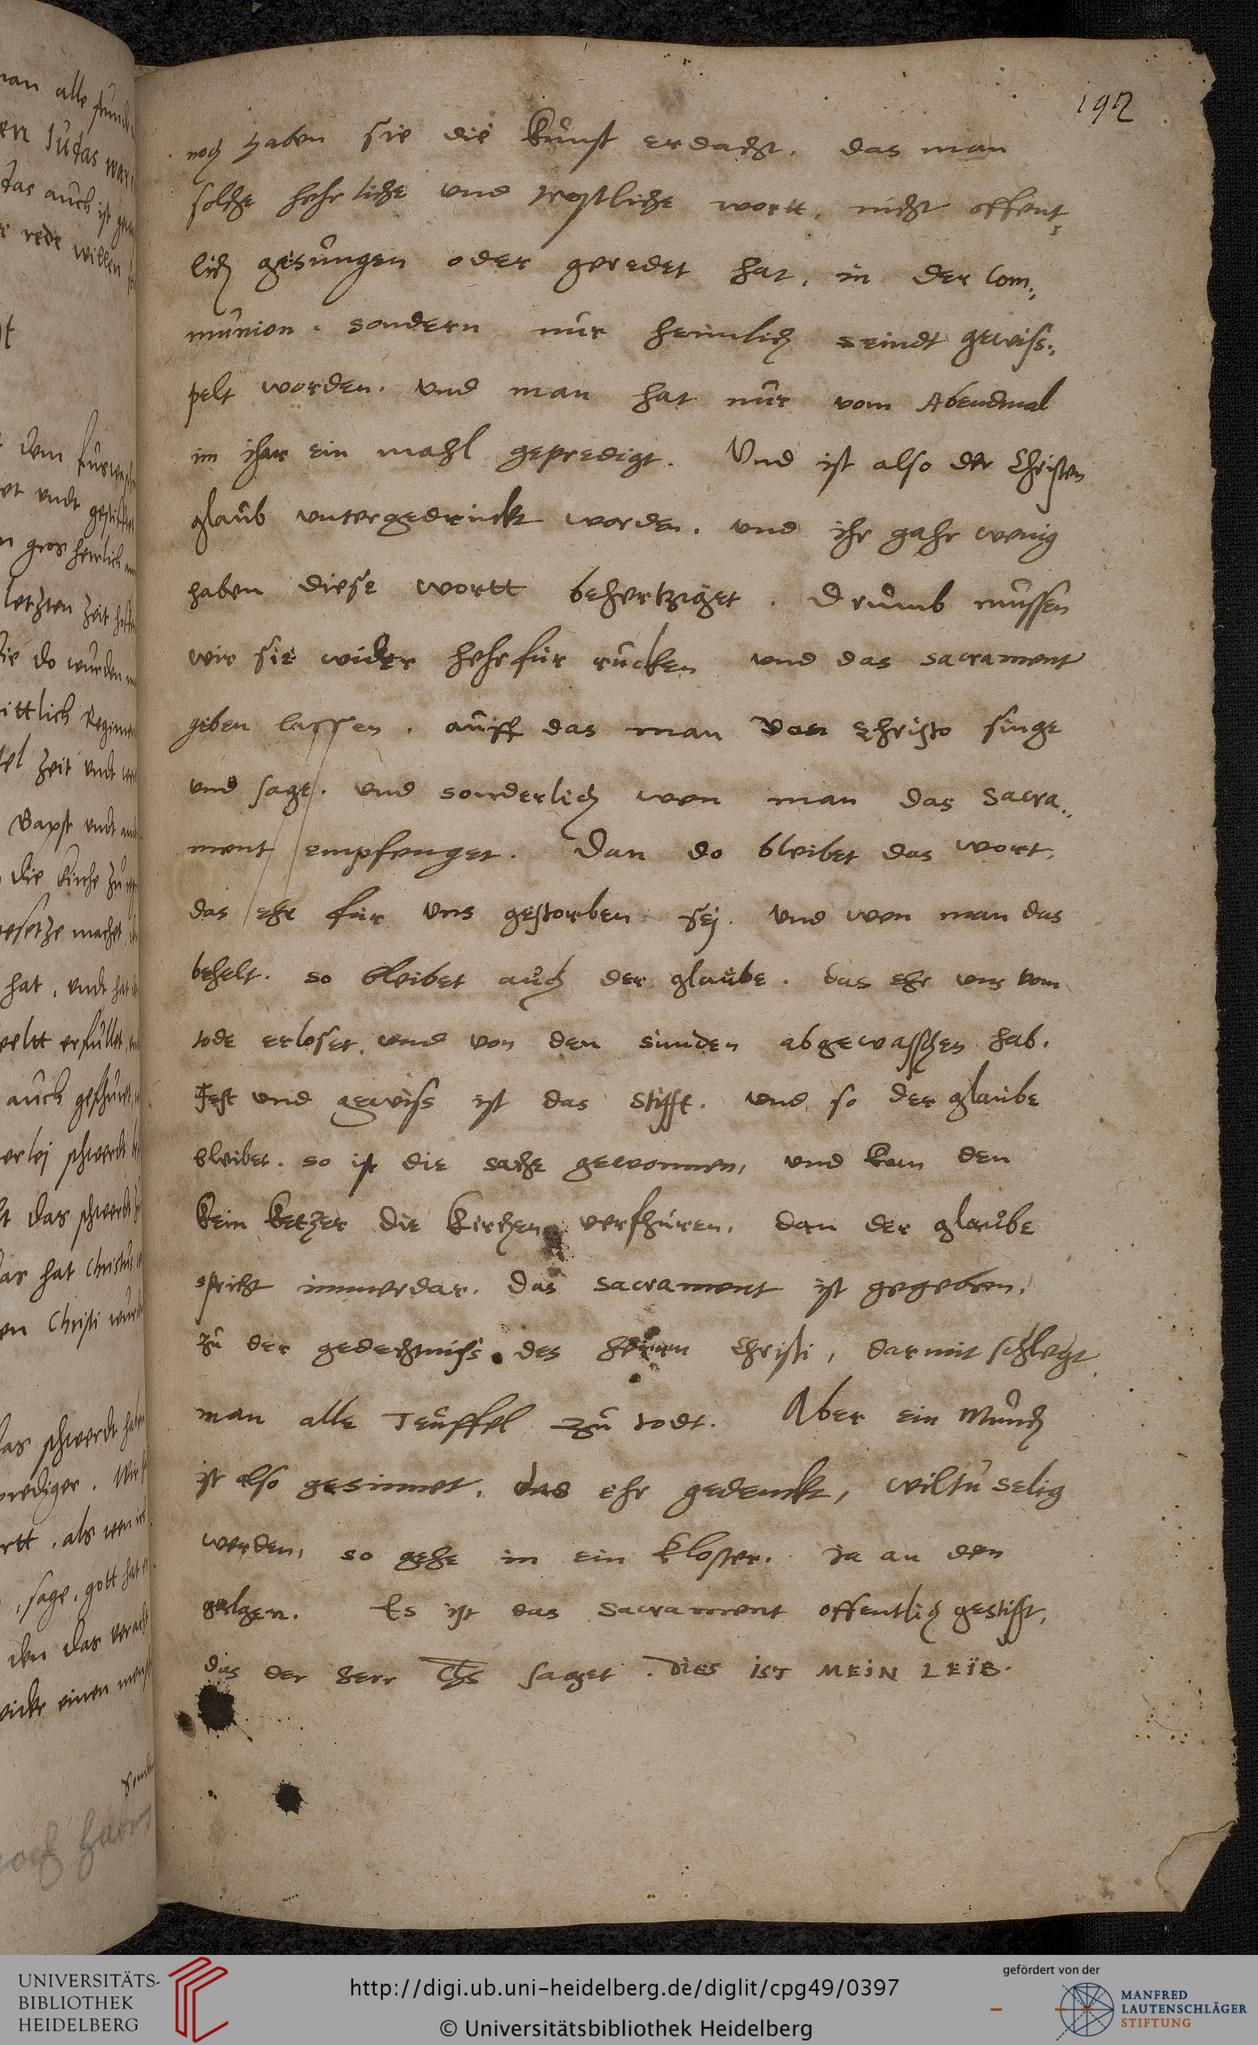 192
noch haben sie die kunst erdacht, das man
solche hehrliche und trostliche wortt, nicht offent,
lich gesungen oder geredet hat, in der Com,,
munion, sondern nur heimlich seindt gewiss,,
pelt worden. und man hat nur vom Abendmal
im ihar ein mahl gepredigt. Und ist also der Christen
glaub untergedruckt worden, und ihr gahr wenig
haben diese wortt behertziget. Drumb mussen
wir sie wider hehrfur rucken und das sacrament
geben lassen. auff das man von Christo singe
und sage. und sonderlich wen man das Sacra,,
ment empfenget. Dan do bleibet das wort,
das ehr fur uns gestorben sej. und wen man das
behelt. so bleibet auch der glaube. das ehr uns vom
tode erloset, und von den sunden abgewasschen hab.
Fest und gewiss ist das Stifft. und so der glaube
bleibet. so ist die sache gewonnen, und kan den
kein ketzer die kirchen verfhuren, dan der glaube
spricht immerdar. das sacrament ist gegeben,
zu der gedechtniss des herrn Christi, darmit schlegt
man alle Teuffel zu todt. Aber ein Munch
ist also gesinnet, das ehr gedenckt, wiltu selig
werden, so gehe in ein kloster. ja an den
galgen. Es ist das Sacrament offentlich gestifft,
das der herr Chs saget. Dies ist MEIN LEIB.
man alle stunde
Judas war
das auch ist
rede willen
dem
undt gestifftet
gros herrlich
letzten Zeit
die do wurden
Regiment
Zeit undt
Bapst undt
die kirche
gesetze machet
hat, undt hat
weltt erfullet
auch gefhuret
schwerdt
das schwerdt
das hat Christus
Christi wurde
das schwerdt
prediger. Wir
als wen
sage, gott hat
den das
einen
noch haben
UNIVERSITÄTS-
BIBLIOTHEK
HEIDELBERG
http://digi.ub.uni-heidelberg.de/diglit/cpg49/0397
© Universitätsbibliothek Heidelberg
gefördert von der
MANFRED
LAUTENSCHLÄGER
STIFTUNG